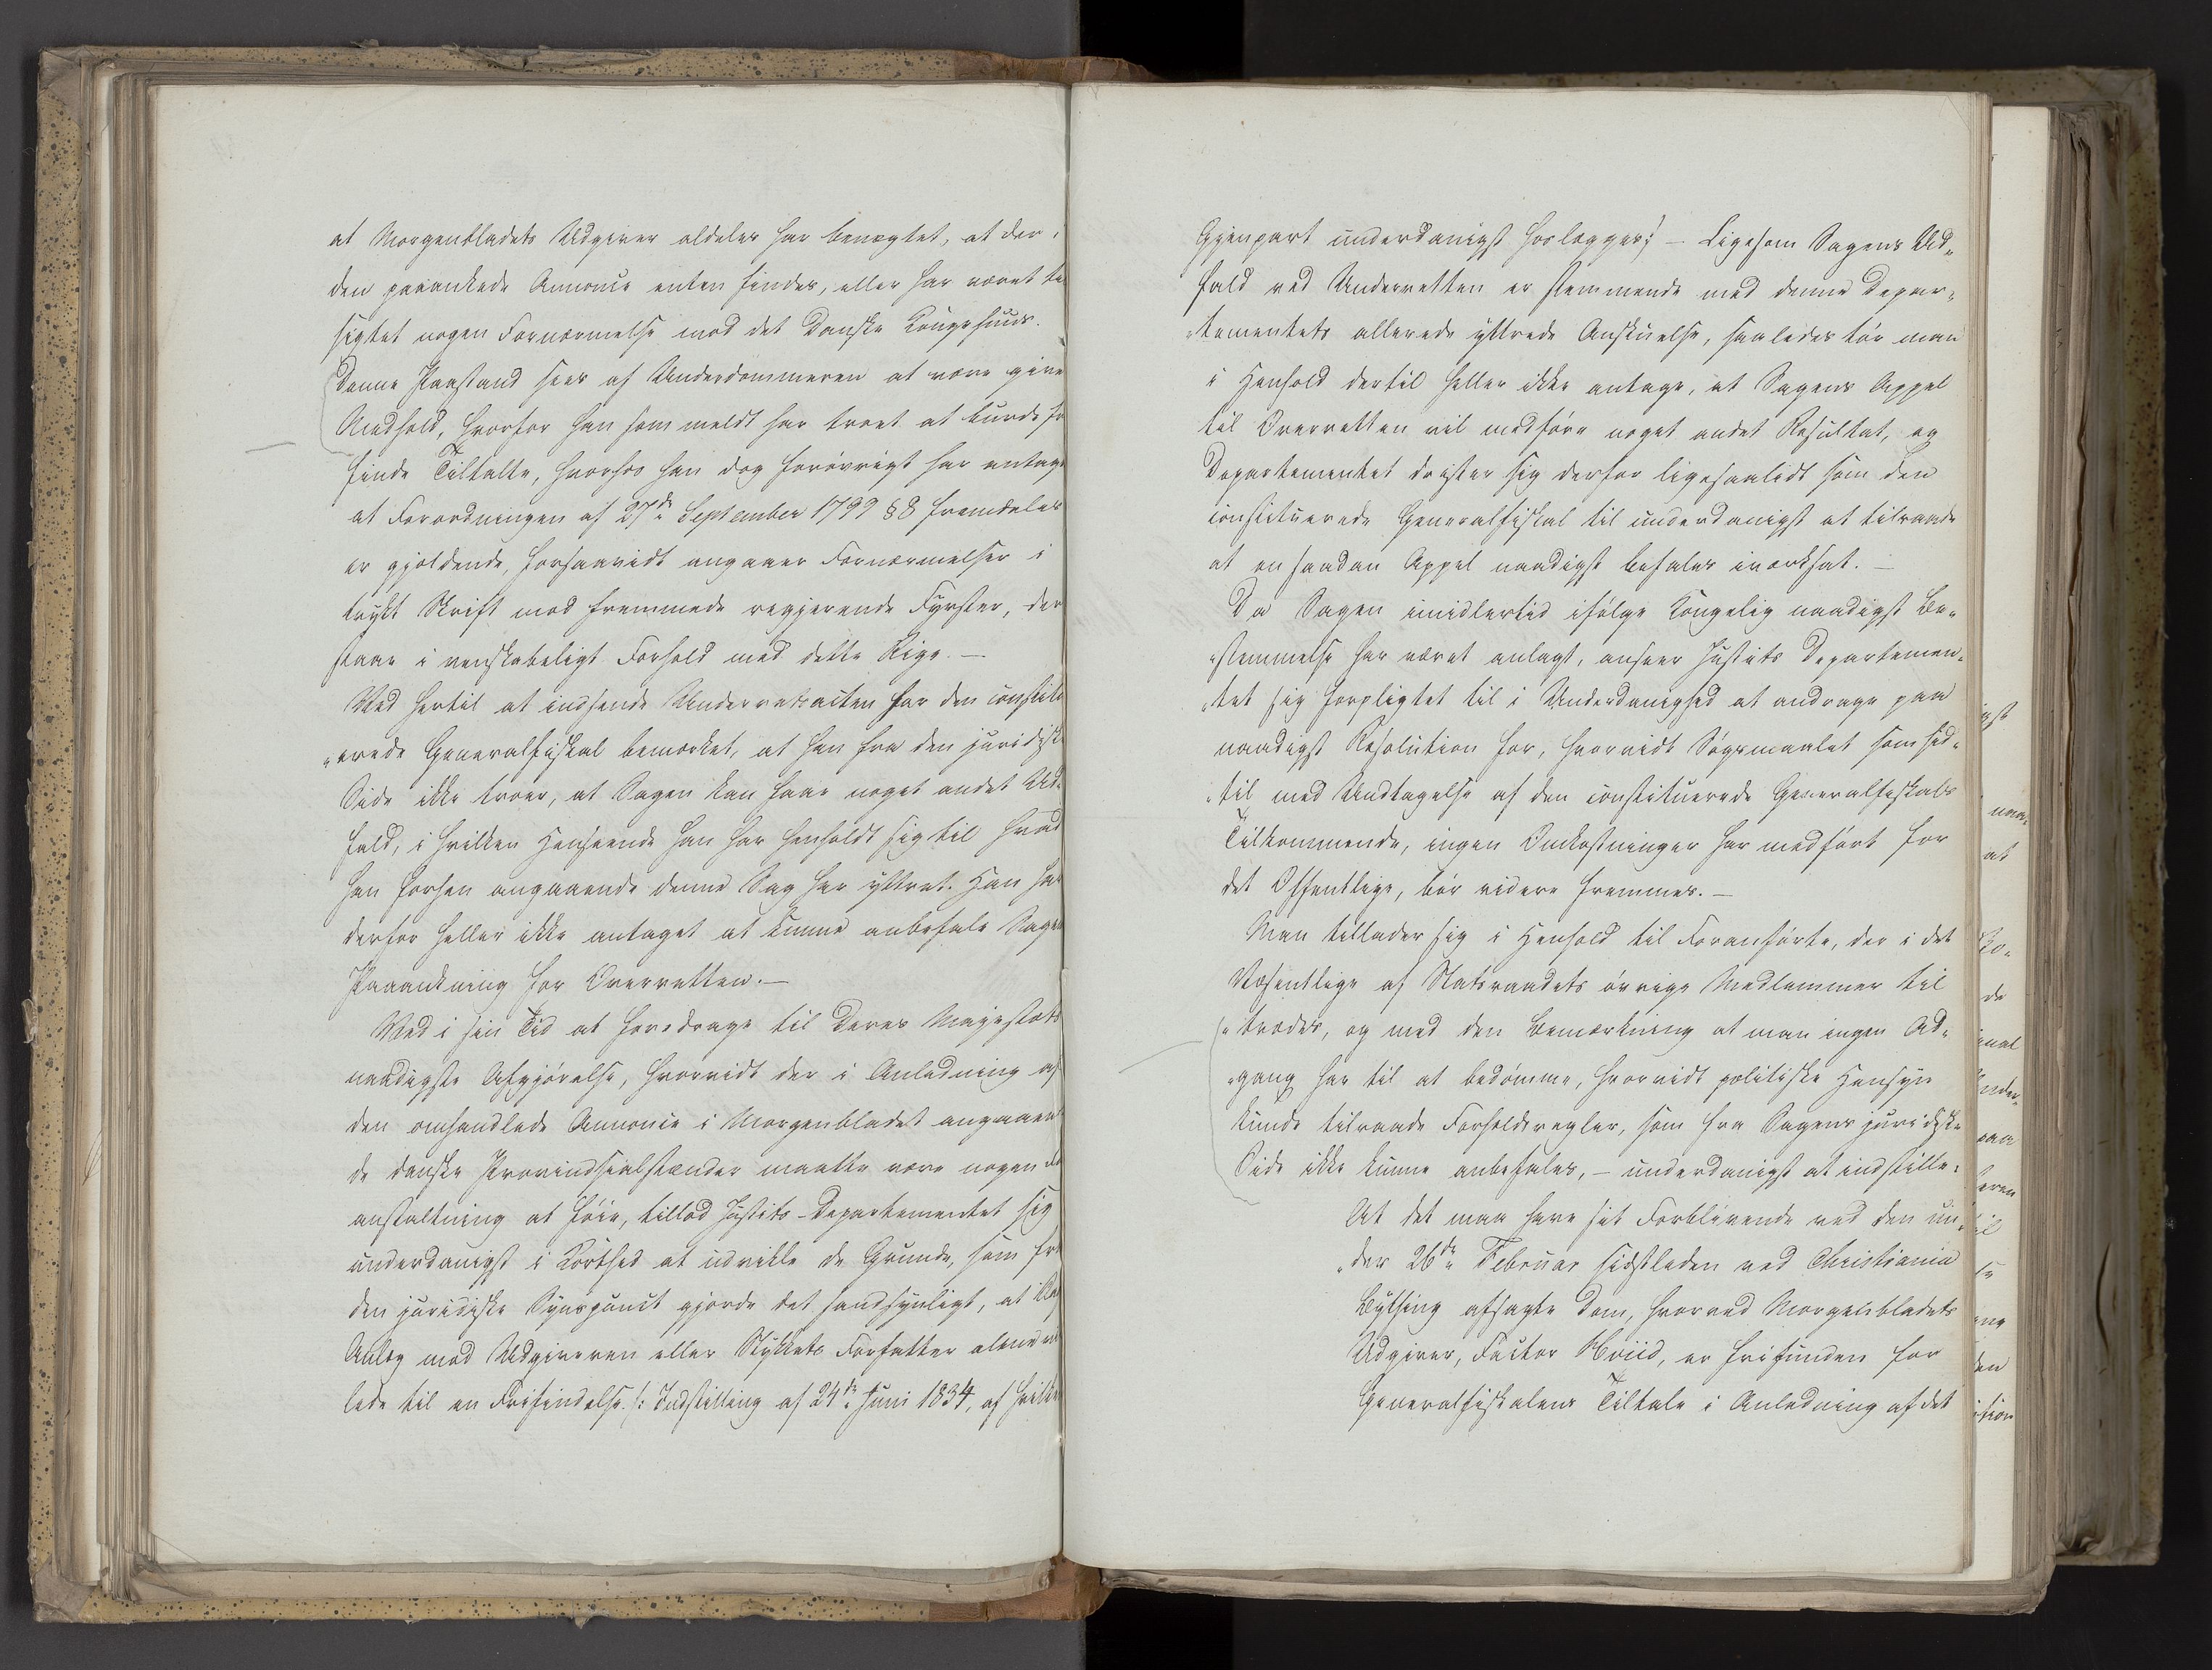 at Morgenbladets Udgiver aldeles har benegtet, at der i
den paaankede Annonce enten findes, eller har været til
sigtet nogen Fornærmelse mod det Danske Kongehuus.
Denne Paastand sees af Underdommeren at være given
Medhold, hvorfor han som meldt har troet at burde fri
finde Tiltalte, hvorhos han dog forøvrigt har antaget
at Forordningen af 27de September 1799 § 8 fremdeles
er gjældende, forsaavidt angaaer Fornærmelser i
trykt Skrift mod fremmede regjerende Fyrster, der
staae i venskabeligt Forhold med dette Rige. —
Ved hertil at indsende Underretsacten har den constitu
„erede Generalfiskal bemærket, at han fra den juridiske
Side ikke troer, at Sagen kan faae noget andet Ud-
fald, i hvilken Henseende han har henholdt sig til hvad
han forhen angaaende denne Sag har yttret. Han har
derfor heller ikke antaget at kunne anbefale Sagens
Paaankning for Overretten. —
Ved i sin Tid at foredrage til Deres Majestæts
naadigste Afgjørelse, hvorvidt der i Anledning af
den omhandlede Annonce i Morgenbladet angaaende
de danske Provindsialstænder maatte være nogen For
anstaltning at føie, tillod Justits-Departementet sig
underdanigst i Korthed at udvikle de Grunde, som fra
den juridiske Synspunct gjorde det sandsynligt, at
Anlæg mod Udgiveren eller Stykkets Forfatter alene vil
lede til en Frifindelse. /: Indstilling af 24de Juni 1834, af hvilken
Gjenpart underdanigst hoslægges:/ — Ligesom Sagens Ud„
fald ved Underretten er stemmende med denne Depar„
„tementets allerede yttrede Anskuelse, saaledes tør man
i Henhold dertil heller ikke antage, at Sagens Appel
til Overretten vil medføre noget andet Resultat, og
Departementet drister sig derfor ligesaalidt som den
constituerede Generalfiskal til underdanigst at tilraade
at en saadan Appel naadigst befales iværksat. —
Da Sagen imidlertid ifølge Kongelig naadigst Be„
„stemmelse har været anlagt, anseer Justits Departemen„
„tet sig forpligtet til i Underdanighed at andrage paa
naadigst Resolution for, hvorvidt Søgsmaalet som hid„
„til med Undtagelse af den constituerede Generalfiskals
Tilkommende, ingen Omkostninger har medført for
det Offentlige, bør videre fremmes. —
Man tillader sig i Henhold til Foranførte, der i det
Væsentlige af Statsraadets øvrige Medlemmer til
„trædes, og med den Bemærkning at man ingen Ad„
„gang har til at bedømme, hvorvidt politiske Hensyn
kunde tilraade Forholdsregler, som fra Sagens juridiske
Side ikke kunne anbefales, — underdanigst at indstille:
At det maa have sit Forblivende ved den un„
„der 26de Februar sidstleden ved Christiania
Bything afsagte Dom, hvorved Morgenbladets
Udgiver, Factor Hviid, er frifunden for
Generalfiskalens Tiltale i Anledning af det